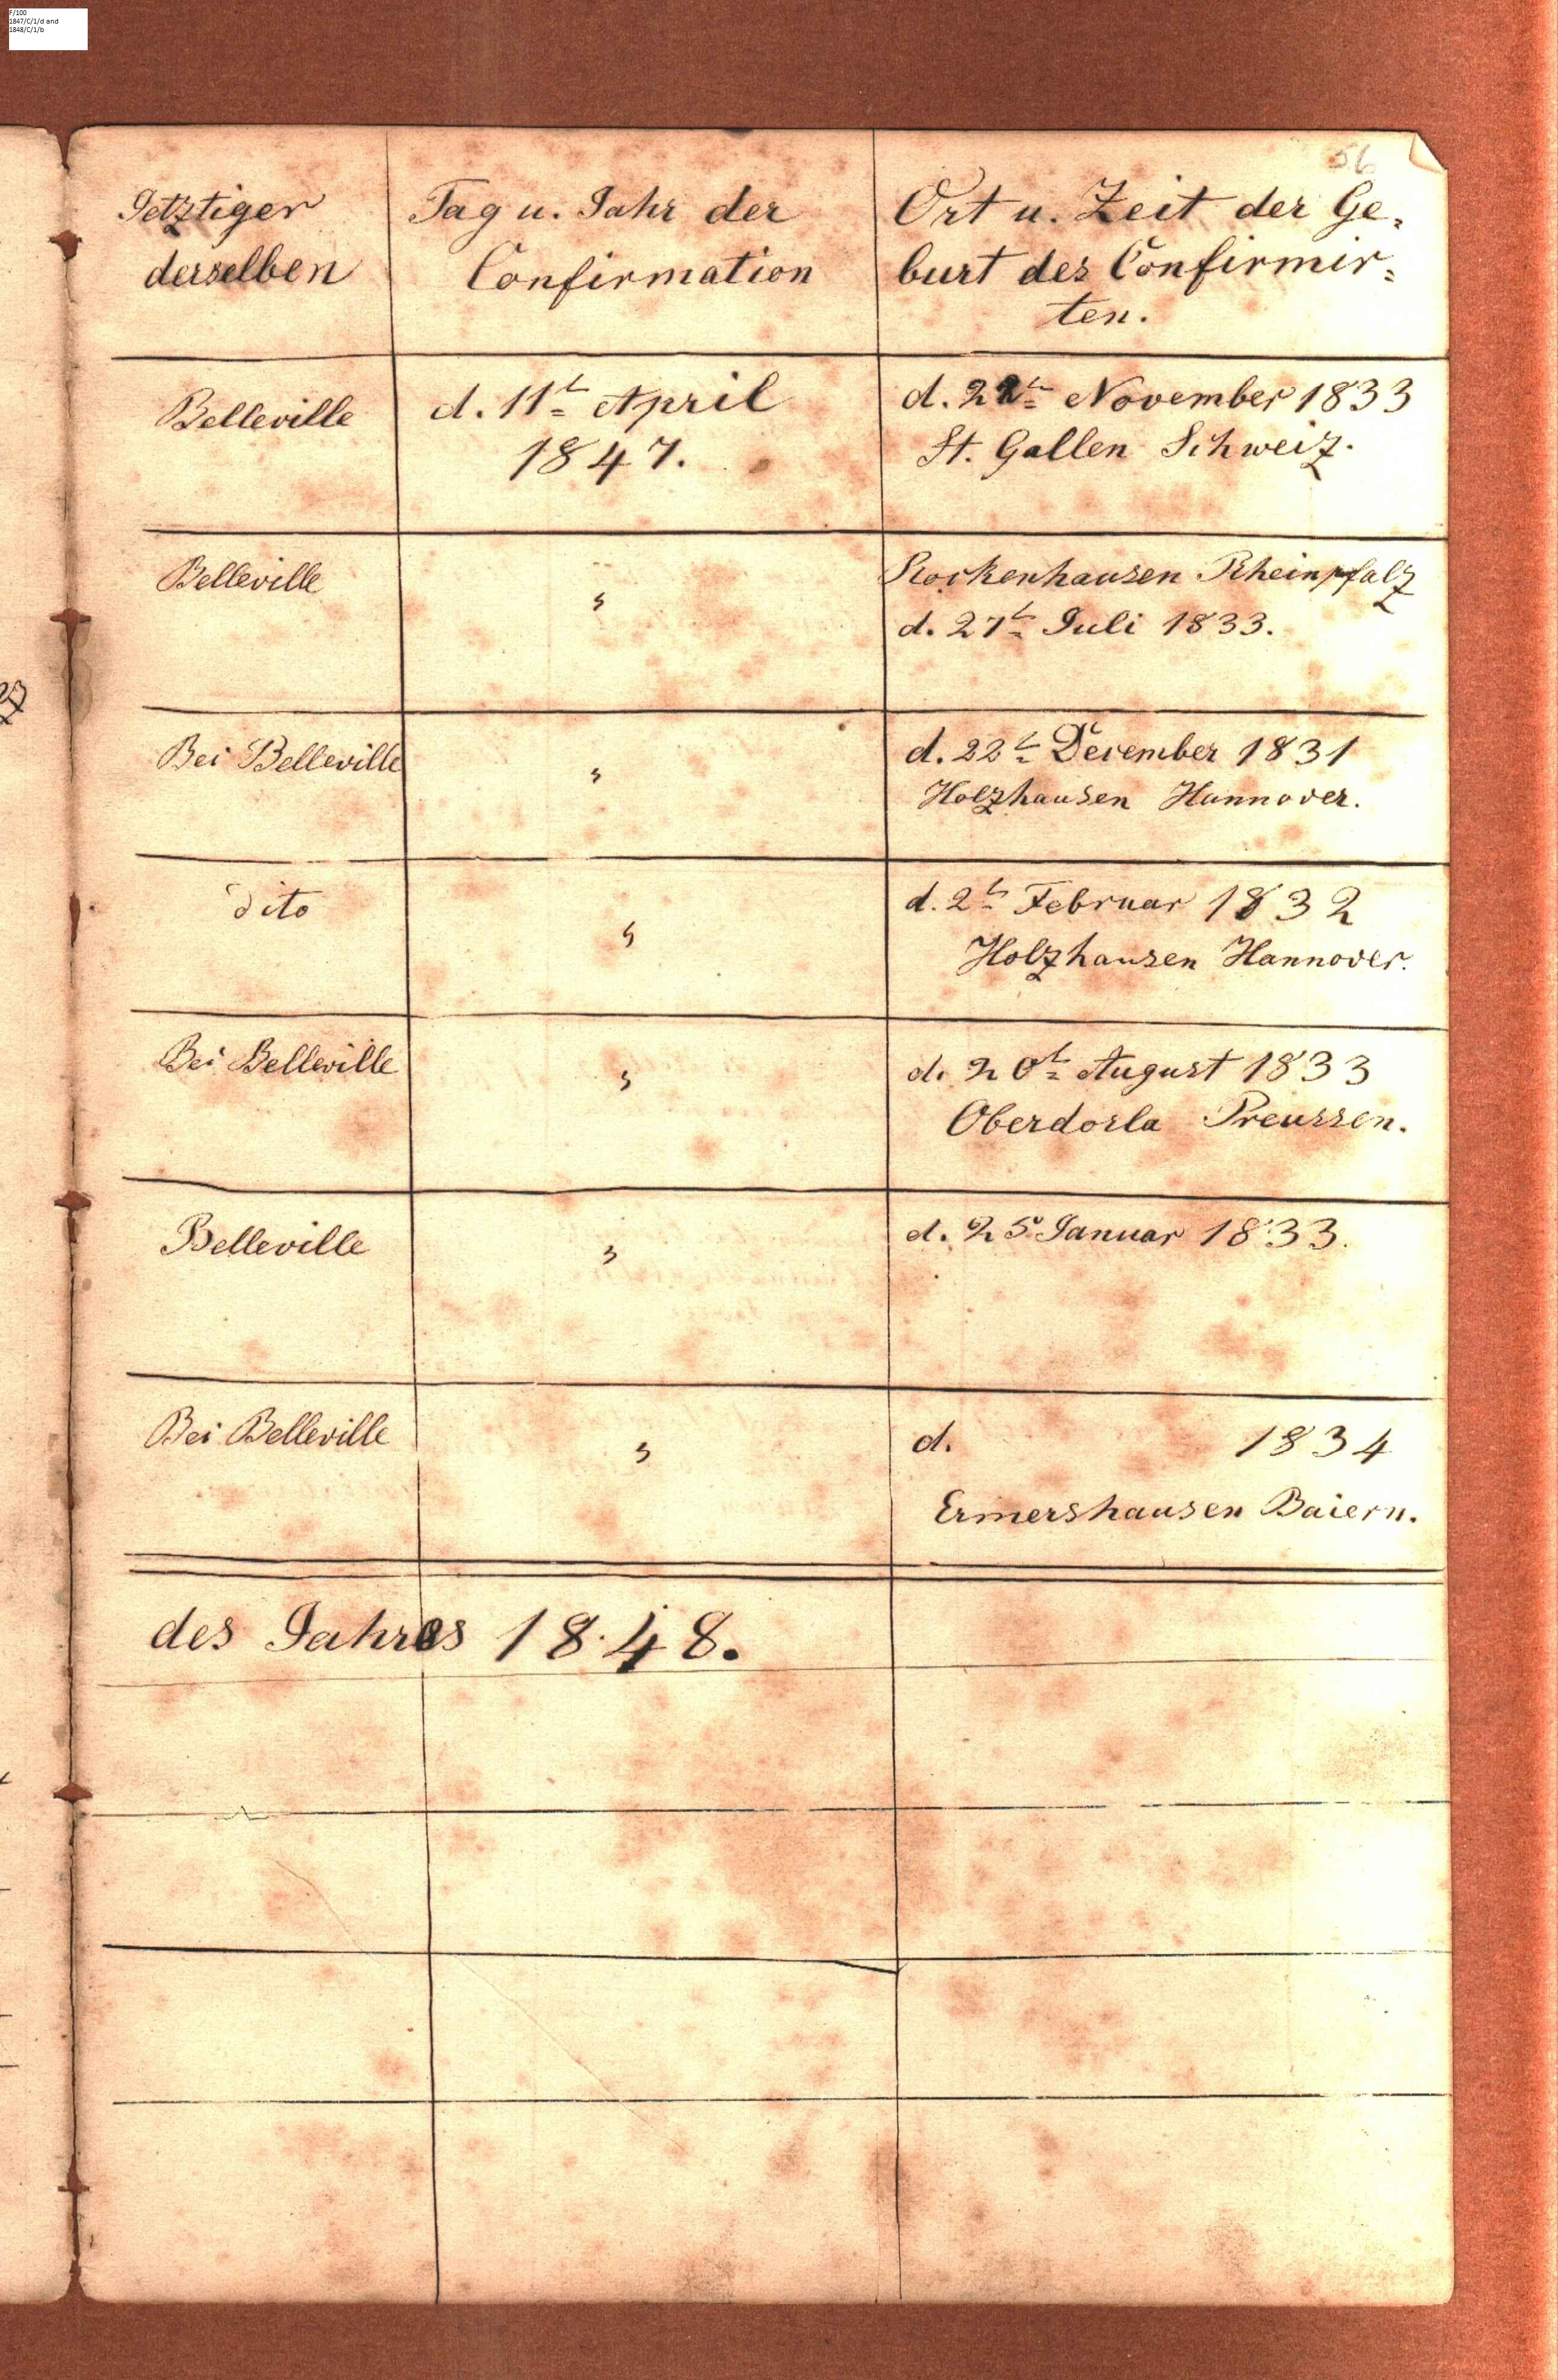 F/100
1847/C/1/d and
1848/C/1/b
56
Jetztiger
derselben
Tag u. Jahr der
Confirmation
Ort u. Zeit der Ge=
burt des Confirmir=
ten.
Belleville
d. 11t April
1847.
d. 22t November 1833
St. Gallen Schweiz.
Belleville
"
Rockenhausen Rheinpfalz
d. 27t Juli 1833.
Bei Belleville
"
d. 22t December 1831
Holzhausen Hannover.
dito
"
d. 2t Februar 1832
Holzhausen Hannover.
Bei Belleville
"
d. 20t August 1833
Oberdorla Preussen.
Belleville
"
d. 25 Januar 1833.
Bei Belleville
"
d. 1834
Ermershausen Baiern.
des Jahres 1848.